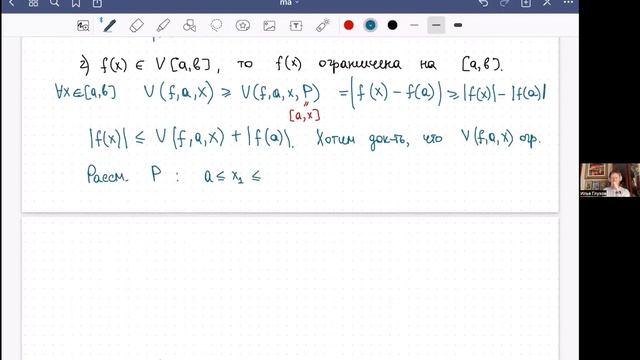 ma
г) f(x) ∈ V[a,b], то f(x) ограничена на [a,b].
∀x∈[a,b] V(f,a,x) ≥ V(f,a,x,P) = |f(x) - f(a)| ≥ |f(x)| - |f(a)|
[a,x]
|f(x)| ≤ V(f,a,x) + |f(a)|. Хотим док-ть, что V(f,a,x) огр.
Рассм. P : a ≤ x₁ ≤
Илья Глухов